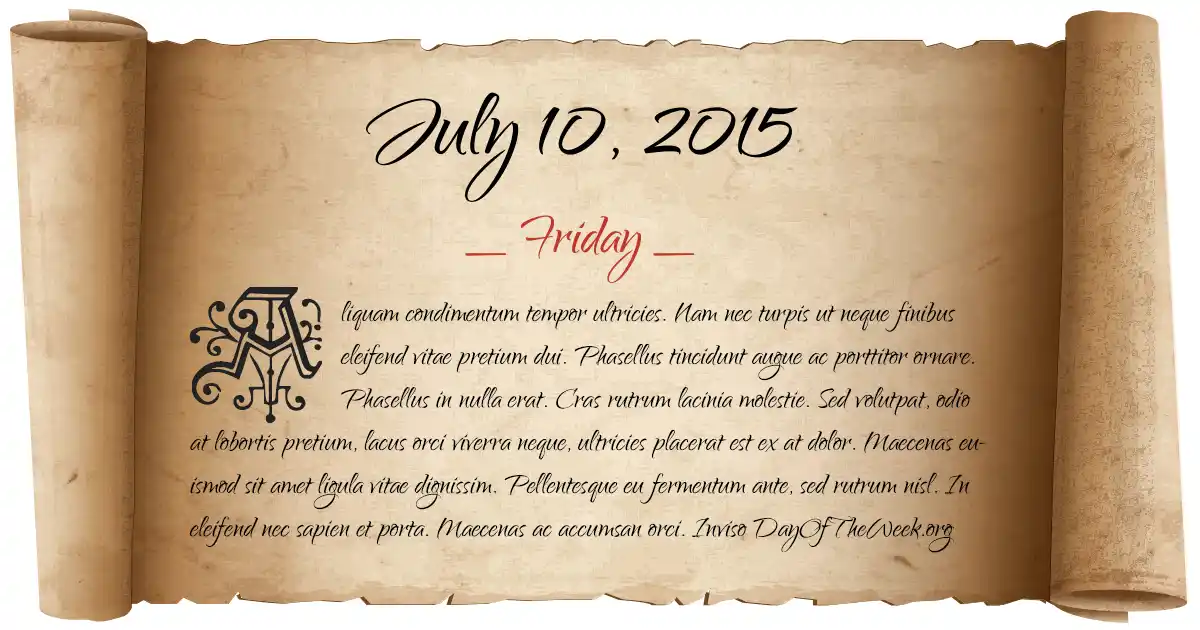 July 10, 2015
_ Friday _
Aliquam condimentum tempor ultricies. Nam nec turpis ut neque finibus
eleifend vitae pretium dui. Phasellus tincidunt augue ac porttitor ornare.
Phasellus in nulla erat. Cras rutrum lacinia molestie. Sed volutpat, odio
at lobortis pretium, lacus orci viverra neque, ultricies placerat est ex at dolor. Maecenas eu-
ismod sit amet ligula vitae dignissim. Pellentesque eu fermentum ante, sed rutrum nisl. In
eleifend nec sapien et porta. Maecenas ac accumsan orci. Inviso DayOfTheWeek.org